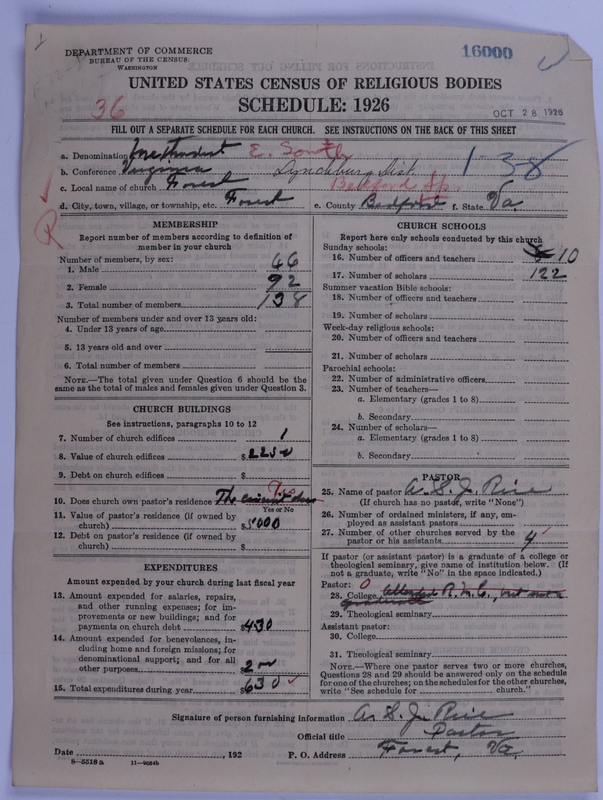 DEPARTMENT OF COMMERCE
BUREAU OF THE CENSUS
WASHINGTON
16000
UNITED STATES CENSUS OF RELIGIOUS BODIES
SCHEDULE: 1926
36
OCT 28 1926
FILL OUT A SEPARATE SCHEDULE FOR EACH CHURCH. SEE INSTRUCTIONS ON THE BACK OF THIS SHEET
a. Denomination Methodist E. South
1-38
b. Conference Virginia Lynchburg Dist.
c. Local name of church Forest Bedford Sp.
d. City, town, village, or township, etc. Forest e. County Bedford f. State Va.
R
MEMBERSHIP
Report number of members according to definition of member in your church
Number of members, by sex:
1. Male 66
2. Female 92
3. Total number of members 138
Number of members under and over 13 years old:
4. Under 13 years of age
5. 13 years old and over
6. Total number of members
NOTE.—The total given under Question 6 should be the same as the total of males and females given under Question 3.
CHURCH BUILDINGS
See instructions, paragraphs 10 to 12
7. Number of church edifices 1
8. Value of church edifices $2250
9. Debt on church edifices $
10. Does church own pastor's residence The circuit does
Yes or No
11. Value of pastor's residence (if owned by church) $5000
12. Debt on pastor's residence (if owned by church) $
EXPENDITURES
Amount expended by your church during last fiscal year
13. Amount expended for salaries, repairs, and other running expenses; for improvements or new buildings; and for payments on church debt $430
14. Amount expended for benevolences, including home and foreign missions; for denominational support; and for all other purposes 200
15. Total expenditures during year $630
CHURCH SCHOOLS
Report here only schools conducted by this church
Sunday schools:
16. Number of officers and teachers 10
17. Number of scholars 122
Summer vacation Bible schools:
18. Number of officers and teachers
19. Number of scholars
Week-day religious schools:
20. Number of officers and teachers
21. Number of scholars
Parochial schools:
22. Number of administrative officers
23. Number of teachers—
a. Elementary (grades 1 to 8)
b. Secondary
24. Number of scholars—
a. Elementary (grades 1 to 8)
b. Secondary
PASTOR
25. Name of pastor A. S. J. Rice
(If church has no pastor, write "None")
26. Number of ordained ministers, if any, employed as assistant pastors
27. Number of other churches served by the pastor or his assistants 4
If pastor (or assistant pastor) is a graduate of a college or theological seminary, give name of institution below. (If not a graduate, write "No" in the space indicated.)
Pastor: 0
28. College attended R. M. C., but not a graduate
29. Theological seminary
Assistant pastor:
30. College
31. Theological seminary
NOTE.—Where one pastor serves two or more churches, Questions 28 and 29 should be answered only on the schedule for one of the churches; on the schedules for the other churches, write "See schedule for church."
Signature of person furnishing information A. S. J. Rice
Official title Pastor
Date , 192 P. O. Address Forest, Va.
8—5518a 11—9024b